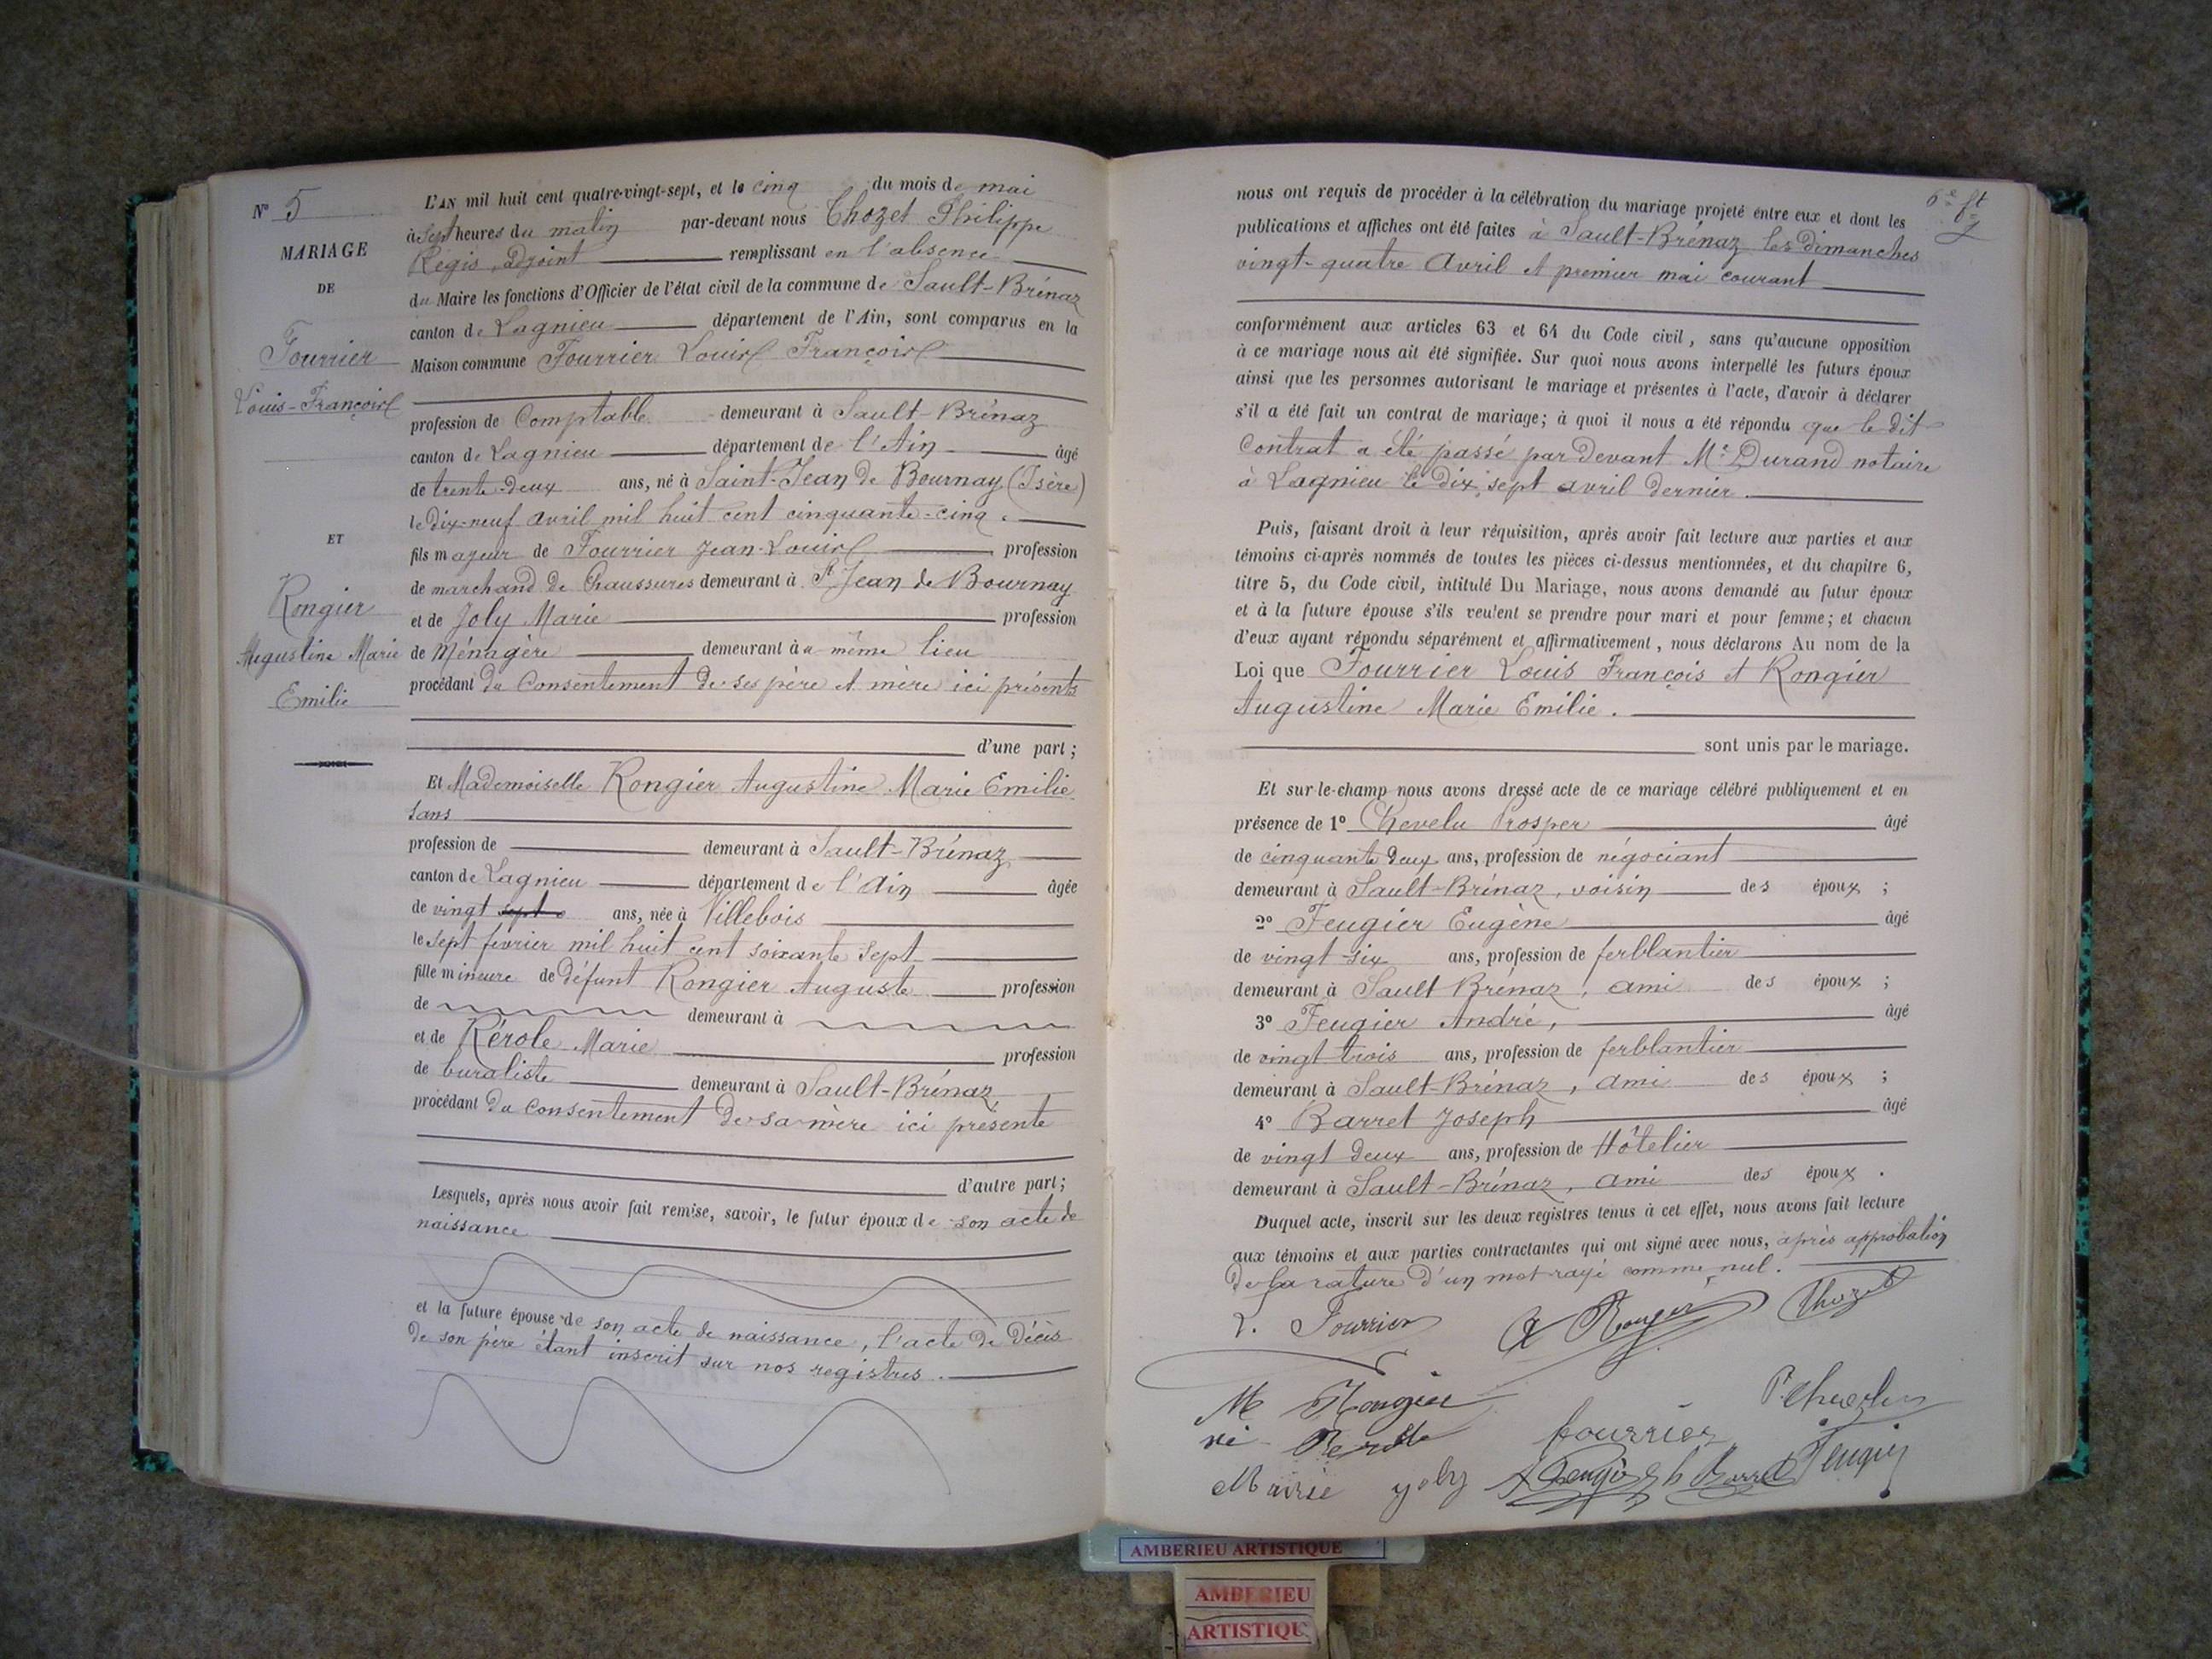 N° 5
MARIAGE
DE
Fourrier
Louis-François
ET
Rongier
Augustine Marie
Emilie
L'AN mil huit cent quatre-vingt-sept, et le cinq du mois de mai
à sept heures du matin par-devant nous Thozet Philippe
Régis, adjoint remplissant en l'absence
du Maire les fonctions d'Officier de l'état civil de la commune de Sault-Brénaz
canton de Lagnieu département de l'Ain, sont comparus en la
Maison commune Fourrier Louis François
profession de Comptable demeurant à Sault-Brénaz
canton de Lagnieu département de l'Ain âgé
de trente-deux ans, né à Saint-Jean de Bournay (Isère)
le dix-neuf avril mil huit cent cinquante-cinq.
fils majeur de Fourrier Jean-Louis profession
de marchand de Chaussures demeurant à St Jean de Bournay
et de Joly Marie profession
de Ménagère demeurant au même lieu
procédant du Consentement de ses père et mère ici présents
d'une part ;
Et Mademoiselle Rongier Augustine Marie Emilie
sans
profession de demeurant à Sault-Brénaz
canton de Lagnieu département de l'Ain âgée
de vingt sept ans, née à Villebois
le sept fevrier mil huit cent soixante sept
fille mineure de défunt Rongier Auguste profession
de demeurant à
et de Rérole Marie profession
de buraliste demeurant à Sault-Brénaz
procédant du consentement de sa mère ici présente
d'autre part ;
Lesquels, après nous avoir fait remise, savoir, le futur époux de son acte de
naissance
et la future épouse de son acte de naissance, l'acte de décès
de son père étant inscrit sur nos registres.
nous ont requis de procéder à la célébration du mariage projeté entre eux et dont les
publications et affiches ont été faites à Sault-Brénaz les dimanches
vingt-quatre avril et premier mai courant
conformément aux articles 63 et 64 du Code civil, sans qu'aucune opposition
à ce mariage nous ait été signifiée. Sur quoi nous avons interpellé les futurs époux
ainsi que les personnes autorisant le mariage et présentes à l'acte, d'avoir à déclarer
s'il a été fait un contrat de mariage; à quoi il nous a été répondu que le dit
Contrat a été passé par devant Me Durand notaire
à Lagnieu le dix sept avril dernier.
Puis, faisant droit à leur réquisition, après avoir fait lecture aux parties et aux
témoins ci-après nommés de toutes les pièces ci-dessus mentionnées, et du chapitre 6,
titre 5, du Code civil, intitulé Du Mariage, nous avons demandé au futur époux
et à la future épouse s'ils veulent se prendre pour mari et pour femme; et chacun
d'eux ayant répondu séparément et affirmativement, nous déclarons Au nom de la
Loi que Fourrier Louis François et Rongier
Augustine Marie Emilie.
sont unis par le mariage.
Et sur-le-champ nous avons dressé acte de ce mariage célébré publiquement et en
présence de 1° Chevelu Prosper âgé
de cinquante deux ans, profession de négociant
demeurant à Sault-Brénaz, voisin des époux ;
2° Feugier Eugène âgé
de vingt-six ans, profession de ferblantier
demeurant à Sault Brénaz, ami des époux ;
3° Feugier André, âgé
de vingt trois ans, profession de ferblantier
demeurant à Sault-Brénaz, ami des époux ;
4° Barret Joseph âgé
de vingt deux ans, profession de Hôtelier
demeurant à Sault-Brénaz, ami des époux.
Duquel acte, inscrit sur les deux registres tenus à cet effet, nous avons fait lecture
aux témoins et aux parties contractantes qui ont signé avec nous, après approbation
de la rature d'un mot rayé comme nul.
L. Fourrier A Rongier Thozet
M Rongier P. Chevelu
né Rerolle fourrier
Marie Joly Feugier Barret Feugier
AMBERIEU ARTISTIQUE
AMBERIEU
ARTISTIQUE